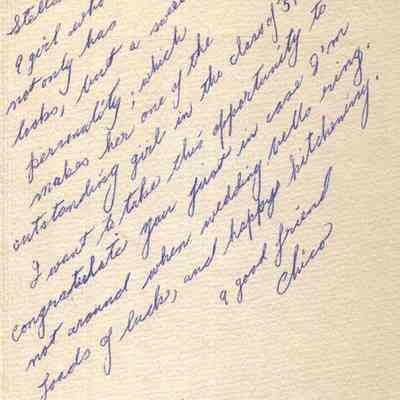 Stella
A girl who
not only has
looks, but a swee
personality; which
makes her one of the
outstanding girl in the class of 5
I want to take this opportunity to
congratulate you first in case I'm
not around when wedding bells ring.
Loads of luck, and happy kitchening.
A good friend
Chico